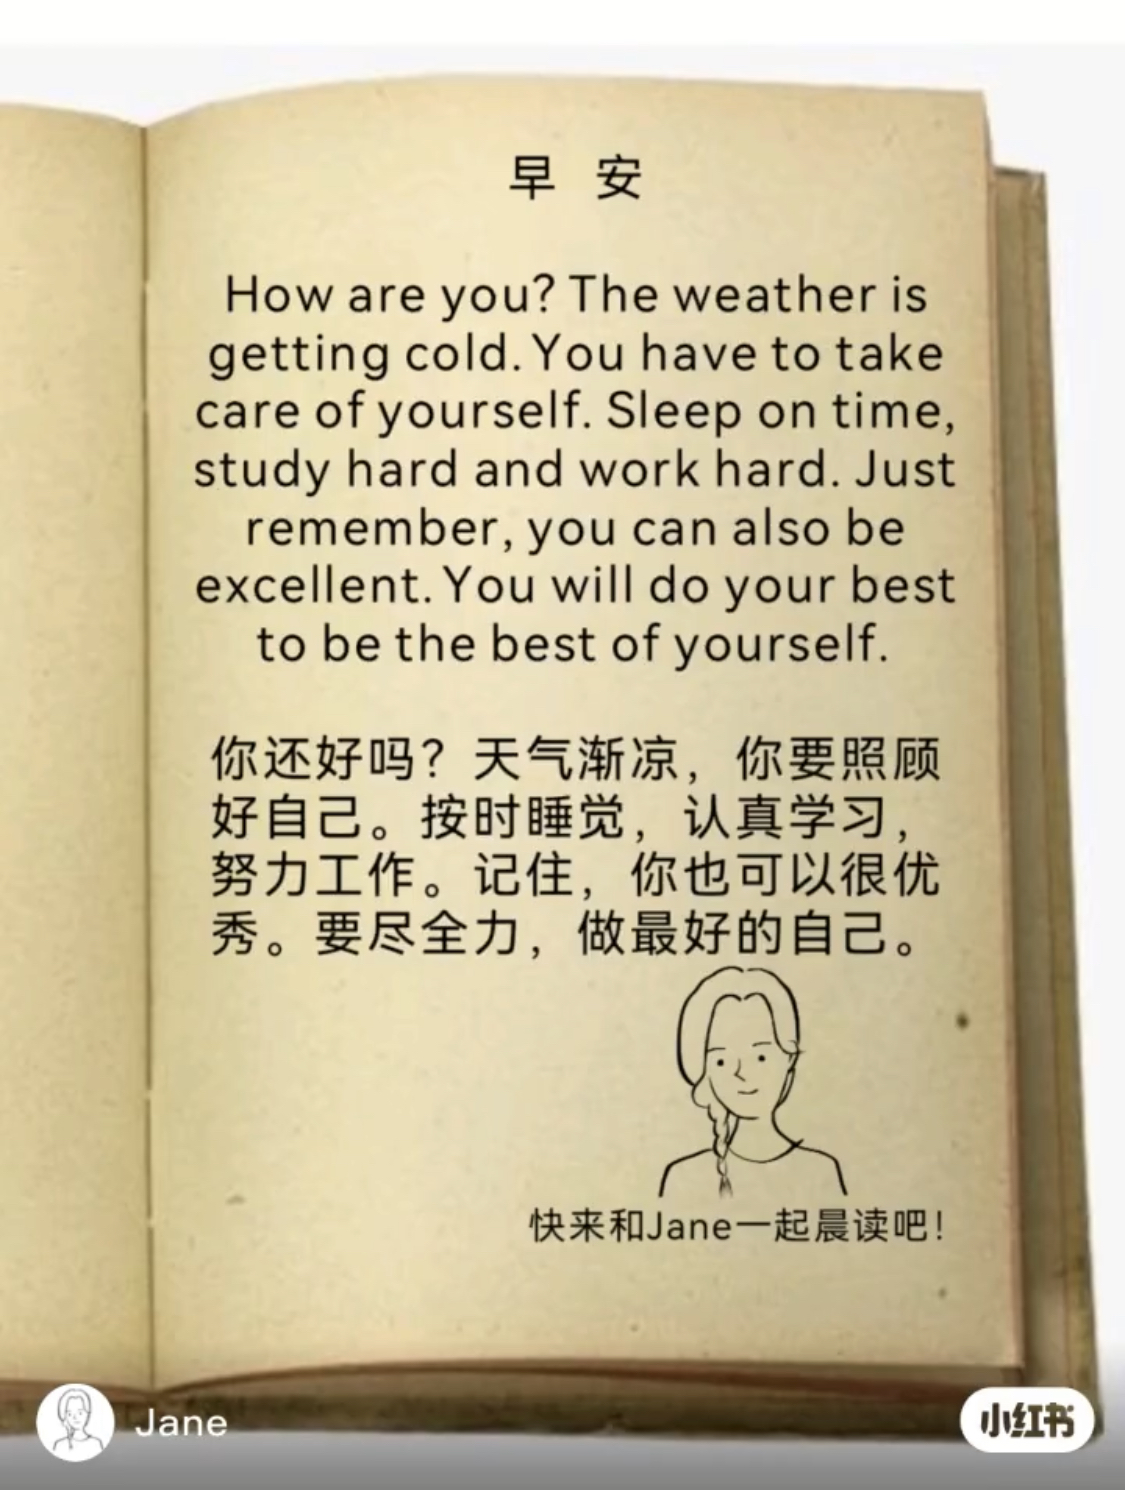 早 安
How are you? The weather is
getting cold. You have to take
care of yourself. Sleep on time,
study hard and work hard. Just
remember, you can also be
excellent. You will do your best
to be the best of yourself.
你还好吗？天气渐凉，你要照顾
好自己。按时睡觉，认真学习，
努力工作。记住，你也可以很优
秀。要尽全力，做最好的自己。
快来和Jane一起晨读吧！
Jane
小红书